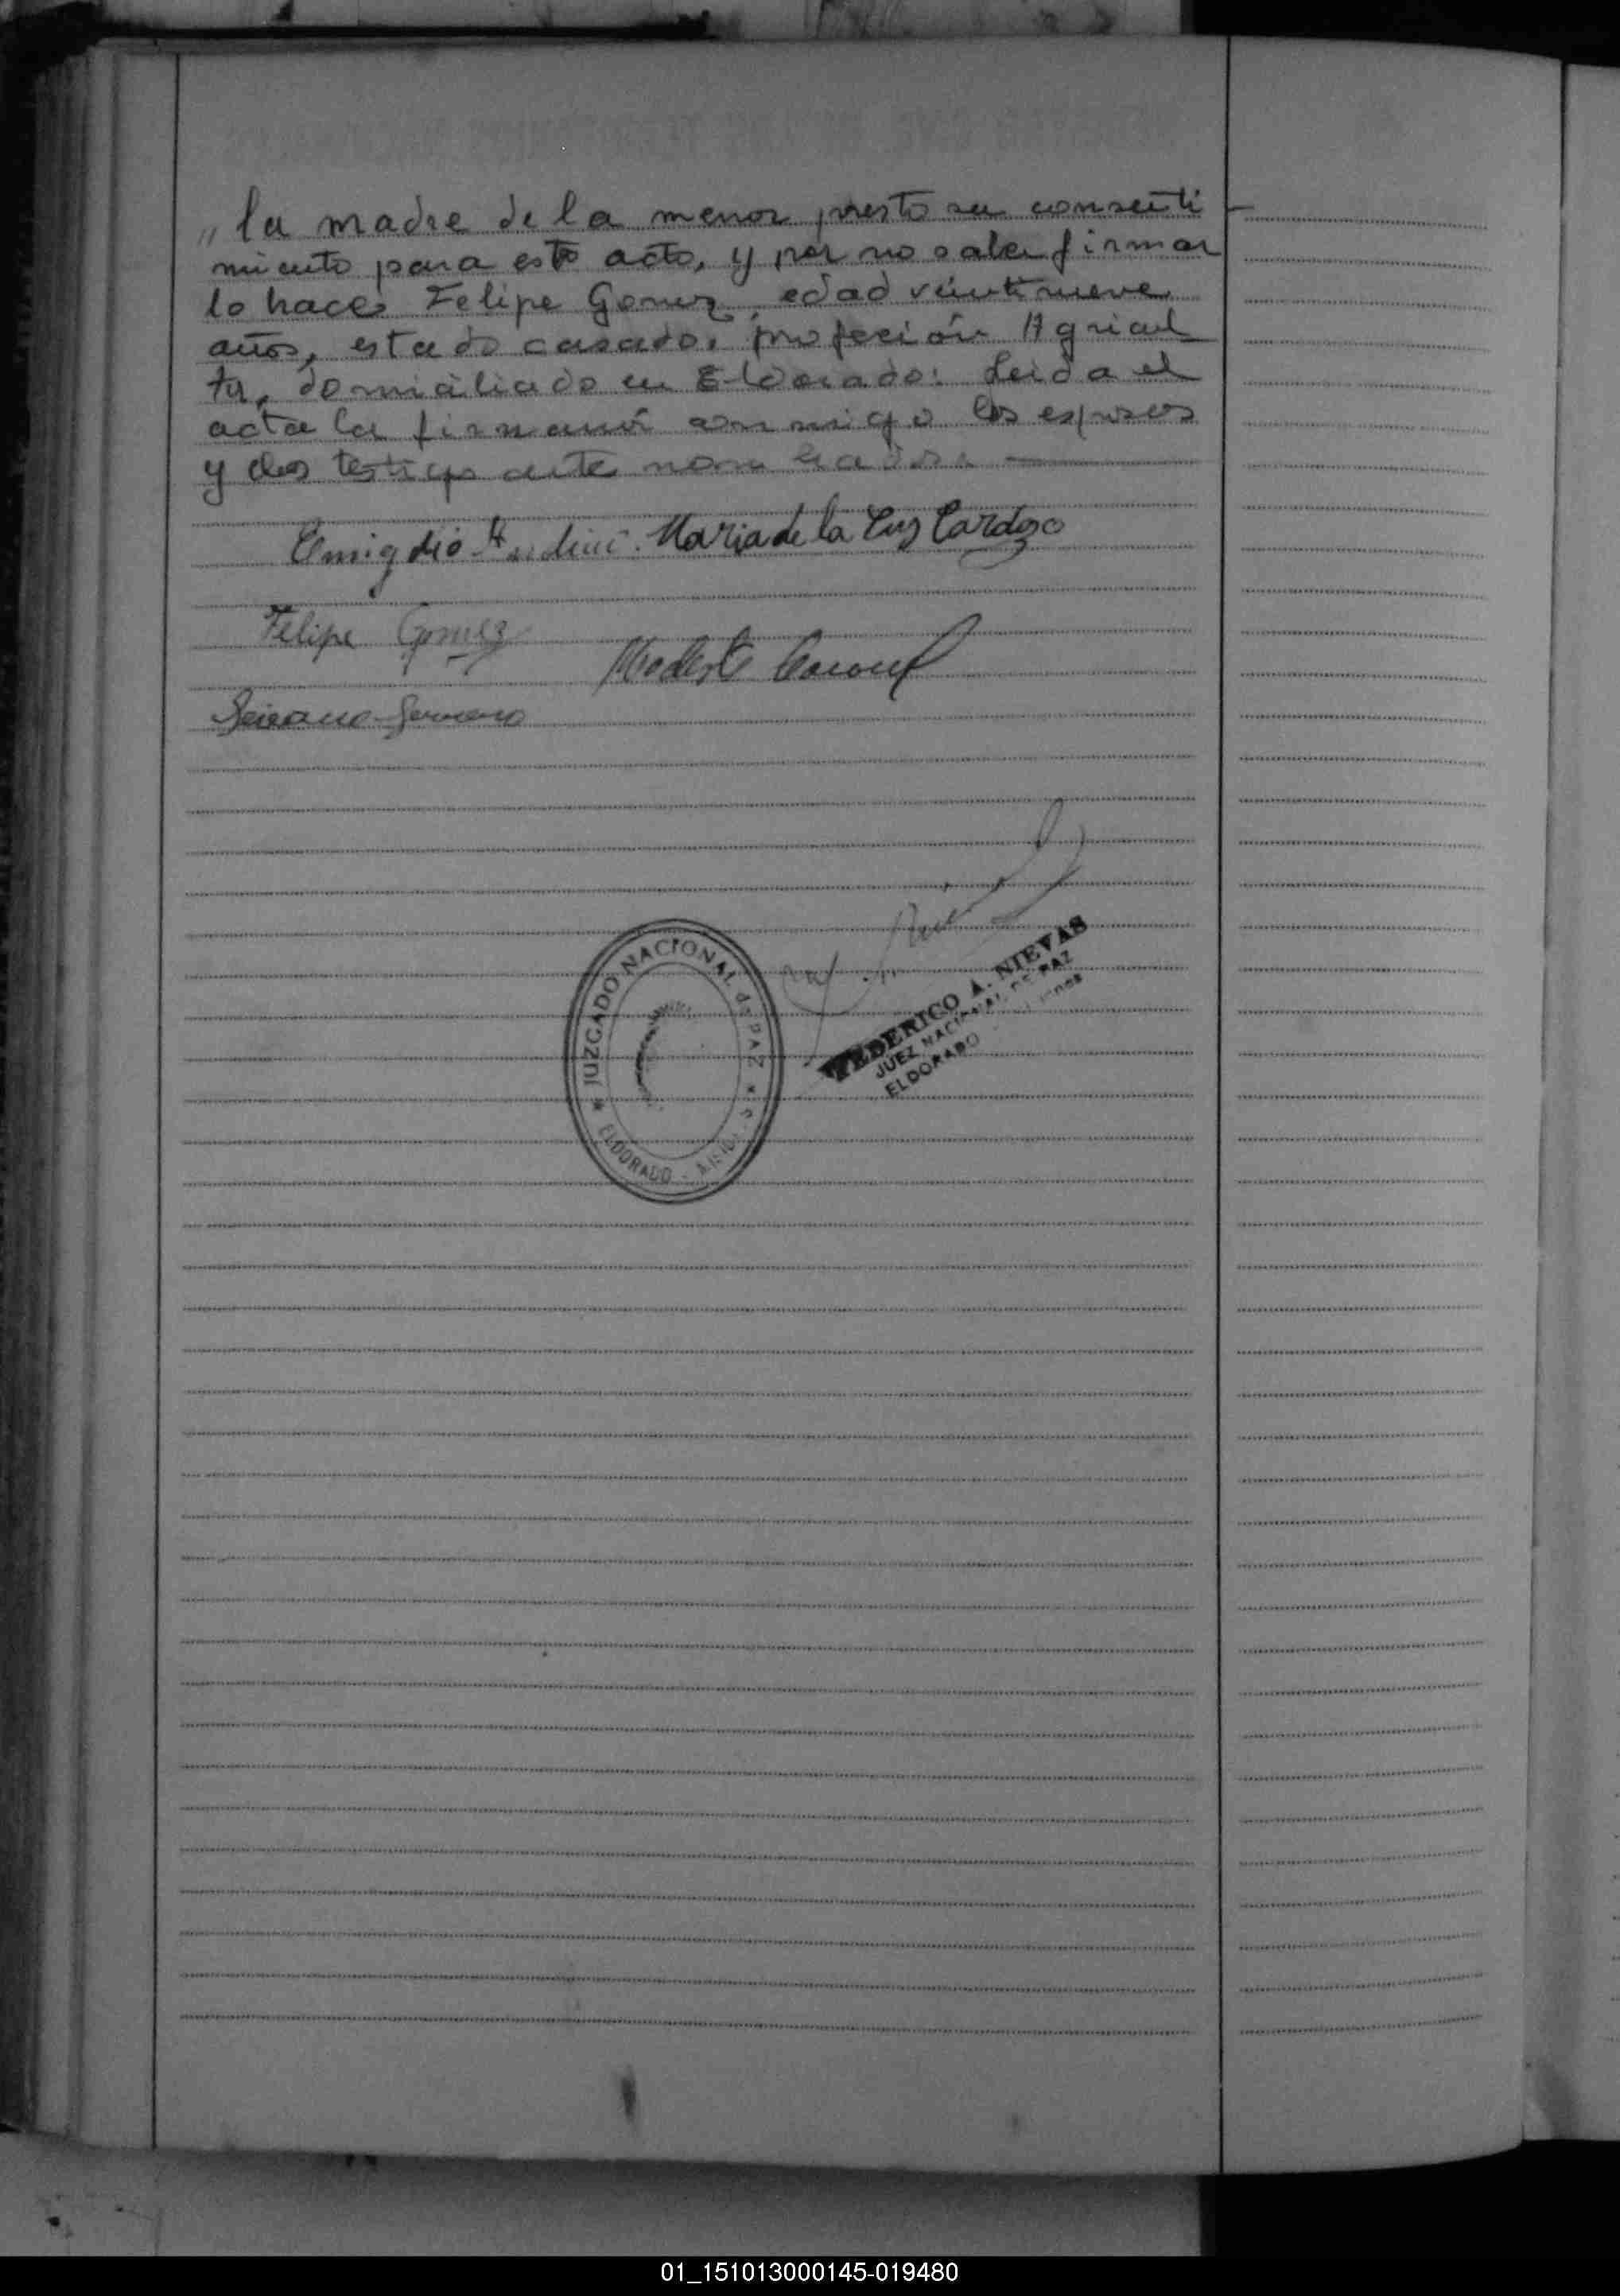 „ la madre de la menor presto su consenti
miento para esto acto, y por no saber firmar
lo hace Felipe Gomez, edad veintinueve
años, estado casado, profeción Agricul
tor, domiciliado en Eldorado: Leida el
acta la firman conmigo los esposos
y los testigos ante nombrados. —
Emigdio Maria de la Luz Cardozo
Felipe Gomez
Modesto
JUZGADO NACIONAL de PAZ
ELDORADO -
FEDERICO A. NIEVAS
JUEZ NACIONAL DE PAZ
ELDORADO
01_151013000145-019480